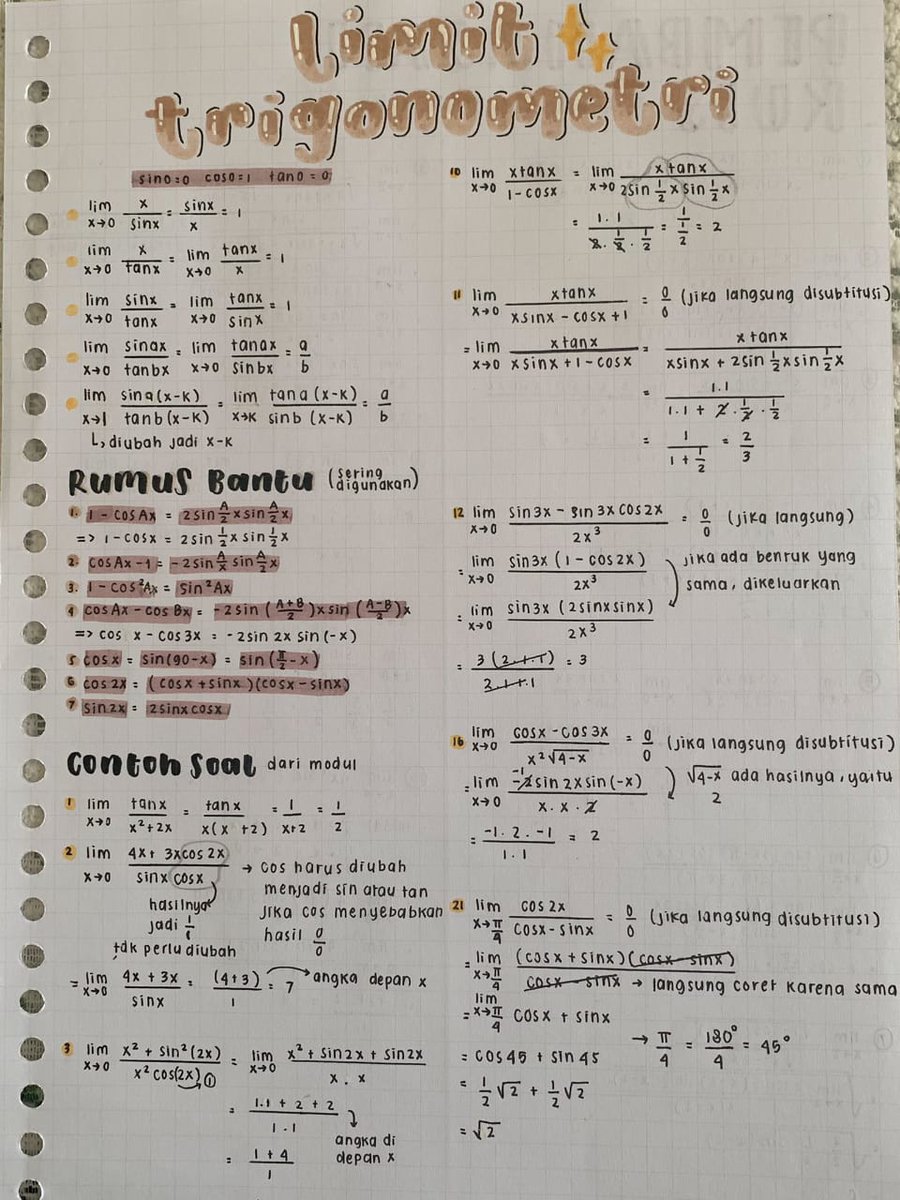 limit
trigonometri
sin0=0 cos0=1 tan0=0
lim x→0 x/sinx = sinx/x = 1
lim x→0 x/tanx = lim x→0 tanx/x = 1
lim x→0 sinx/tanx = lim x→0 tanx/sinx = 1
lim x→0 sinax/tanbx = lim x→0 tanax/sinbx = a/b
lim x→1 sina(x-k)/tanb(x-k) = lim x→k tana(x-k)/sinb(x-k) = a/b
↳ diubah jadi x-k
Rumus Bantu (sering digunakan)
1. 1 - cosAx = 2sin A/2 x sin A/2 x
=> 1-cosx = 2sin 1/2 x sin 1/2 x
2. cosAx-1 = -2sin A/x sin A/2 x
3. 1-cos²Ax = sin²Ax
4 cosAx-cosBx = -2sin (A+B/2)x sin (A-B/2)x
=> cos x-cos3x = -2sin 2x sin(-x)
5 cosx = sin(90-x) = sin(π/2-x)
6 cos2x = (cosx+sinx)(cosx-sinx)
7 sin2x = 2sinxcosx
Contoh Soal dari modul
1 lim x→0 tanx/x²+2x = tanx/x(x+2) = 1/x+2 = 1/2
2 lim x→0 4x+3xcos2x/sinx cosx → cos harus diubah
menjadi sin atau tan
jika cos menyebabkan
hasil 0/0
hasilnya
jadi 1/1
tdk perlu diubah
= lim x→0 4x+3x/sinx = (4+3)/1 = 7 → angka depan x
3 lim x→0 x²+sin²(2x)/x²cos(2x) → 1 = lim x→0 x²+sin2x+sin2x/x.x
= 1.1+2+2/1.1
angka di
depan x
= 1+4/1
10 lim x→0 xtanx/1-cosx = lim x→0 xtanx/2sin 1/2 x sin 1/2 x
= 1.1/2.1/2.1/2 = 1/1/2 = 2
11 lim x→0 xtanx/xsinx-cosx+1 = 0/0 (jika langsung disubtitusi)
= lim x→0 xtanx/xsinx+1-cosx = xtanx/xsinx+2sin 1/2 x sin 1/2 x
= 1.1/1.1+2.1/2.1/2
= 1/1+1/2 = 2/3
12 lim x→0 sin3x-sin3xcos2x/2x³ = 0/0 (jika langsung)
= lim x→0 sin3x(1-cos2x)/2x³ jika ada benruk yang
sama, dikeluarkan
= lim x→0 sin3x(2sinxsinx)/2x³
= 3(2.1.1)/2.1.1 = 3
16 lim x→0 cosx-cos3x/x²√4-x = 0/0 (jika langsung disubtitusi)
= lim x→0 -2sin2xsin(-x)/x.x.2 √4-x ada hasilnya, yaitu
2
= -1.2.-1/1.1 = 2
21 lim x→π/4 cos2x/cosx-sinx = 0/0 (jika langsung disubtitusi)
= lim x→π/4 (cosx+sinx)(cosx-sinx)/cosx-sinx → langsung coret karena sama
= lim x→π/4 cosx+sinx
→ π/4 = 180°/4 = 45°
= cos45+sin45
= 1/2√2 + 1/2√2
= √2